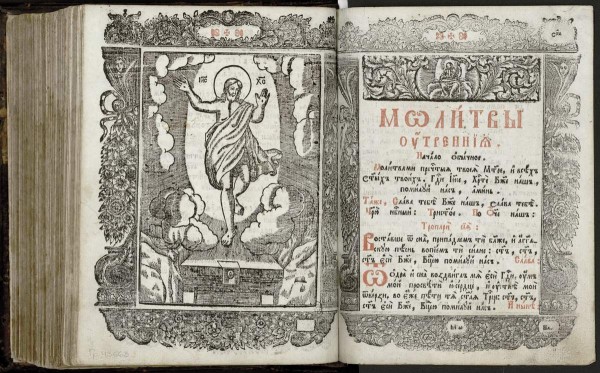 МѠЛИ́ТВЫ
ОУ҆́ТРЕННІѦ.
Начало обычное.
Молитвами прчⷭ҇тыѧ твоеѧ Мт҃ре, и всѣхъ
ст҃ыхъ твоихъ. Гд҇и Іи҃се, Хрт҇е Бж҃е нашъ,
помилуй насъ, аминь.
Таже, Слава тебѣ Бж҃е нашъ, слава тебѣ.
Цр҃ю нб҇ный: Трист҃ое. По Оч҃е нашъ:
Тропари
Воставше ѿ сна, припадаемъ ти бл҃же, и агг҃л-
скую пѣснь вопіемъ ти силне: ст҃ъ, ст҃ъ,
ст҃ъ еси Бж҃е, Бц҃ею помилуй насъ. Слава:
Ѿ одра и сна воздвиглъ мѧ еси Гд҇и, оумъ
мой просвѣти и сердце, и оустнѣ мои
ѿверзи, во еже пѣти тѧ ст҃аѧ Трц҇е: ст҃ъ, ст҃ъ,
ст҃ъ еси Бж҃е, Бц҃ею помилуй насъ. И нынѣ: